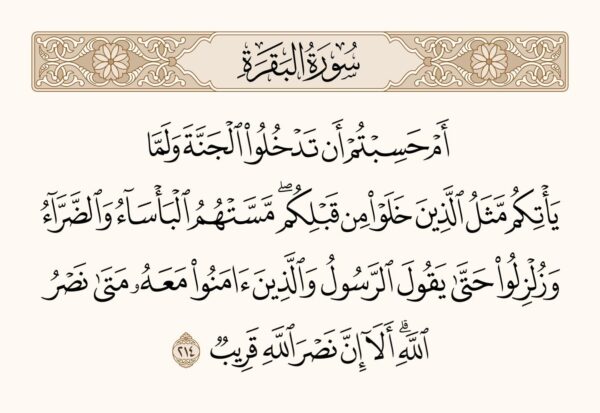 سُورَةُ البَقَرَةِ
أَمْ حَسِبْتُمْ أَن تَدْخُلُوا۟ ٱلْجَنَّةَ وَلَمَّا
يَأْتِكُم مَّثَلُ ٱلَّذِينَ خَلَوْا۟ مِن قَبْلِكُم ۖ مَّسَّتْهُمُ ٱلْبَأْسَآءُ وَٱلضَّرَّآءُ
وَزُلْزِلُوا۟ حَتَّىٰ يَقُولَ ٱلرَّسُولُ وَٱلَّذِينَ ءَامَنُوا۟ مَعَهُۥ مَتَىٰ نَصْرُ
ٱللَّهِ ۗ أَلَآ إِنَّ نَصْرَ ٱللَّهِ قَرِيبٌ ٢١٤